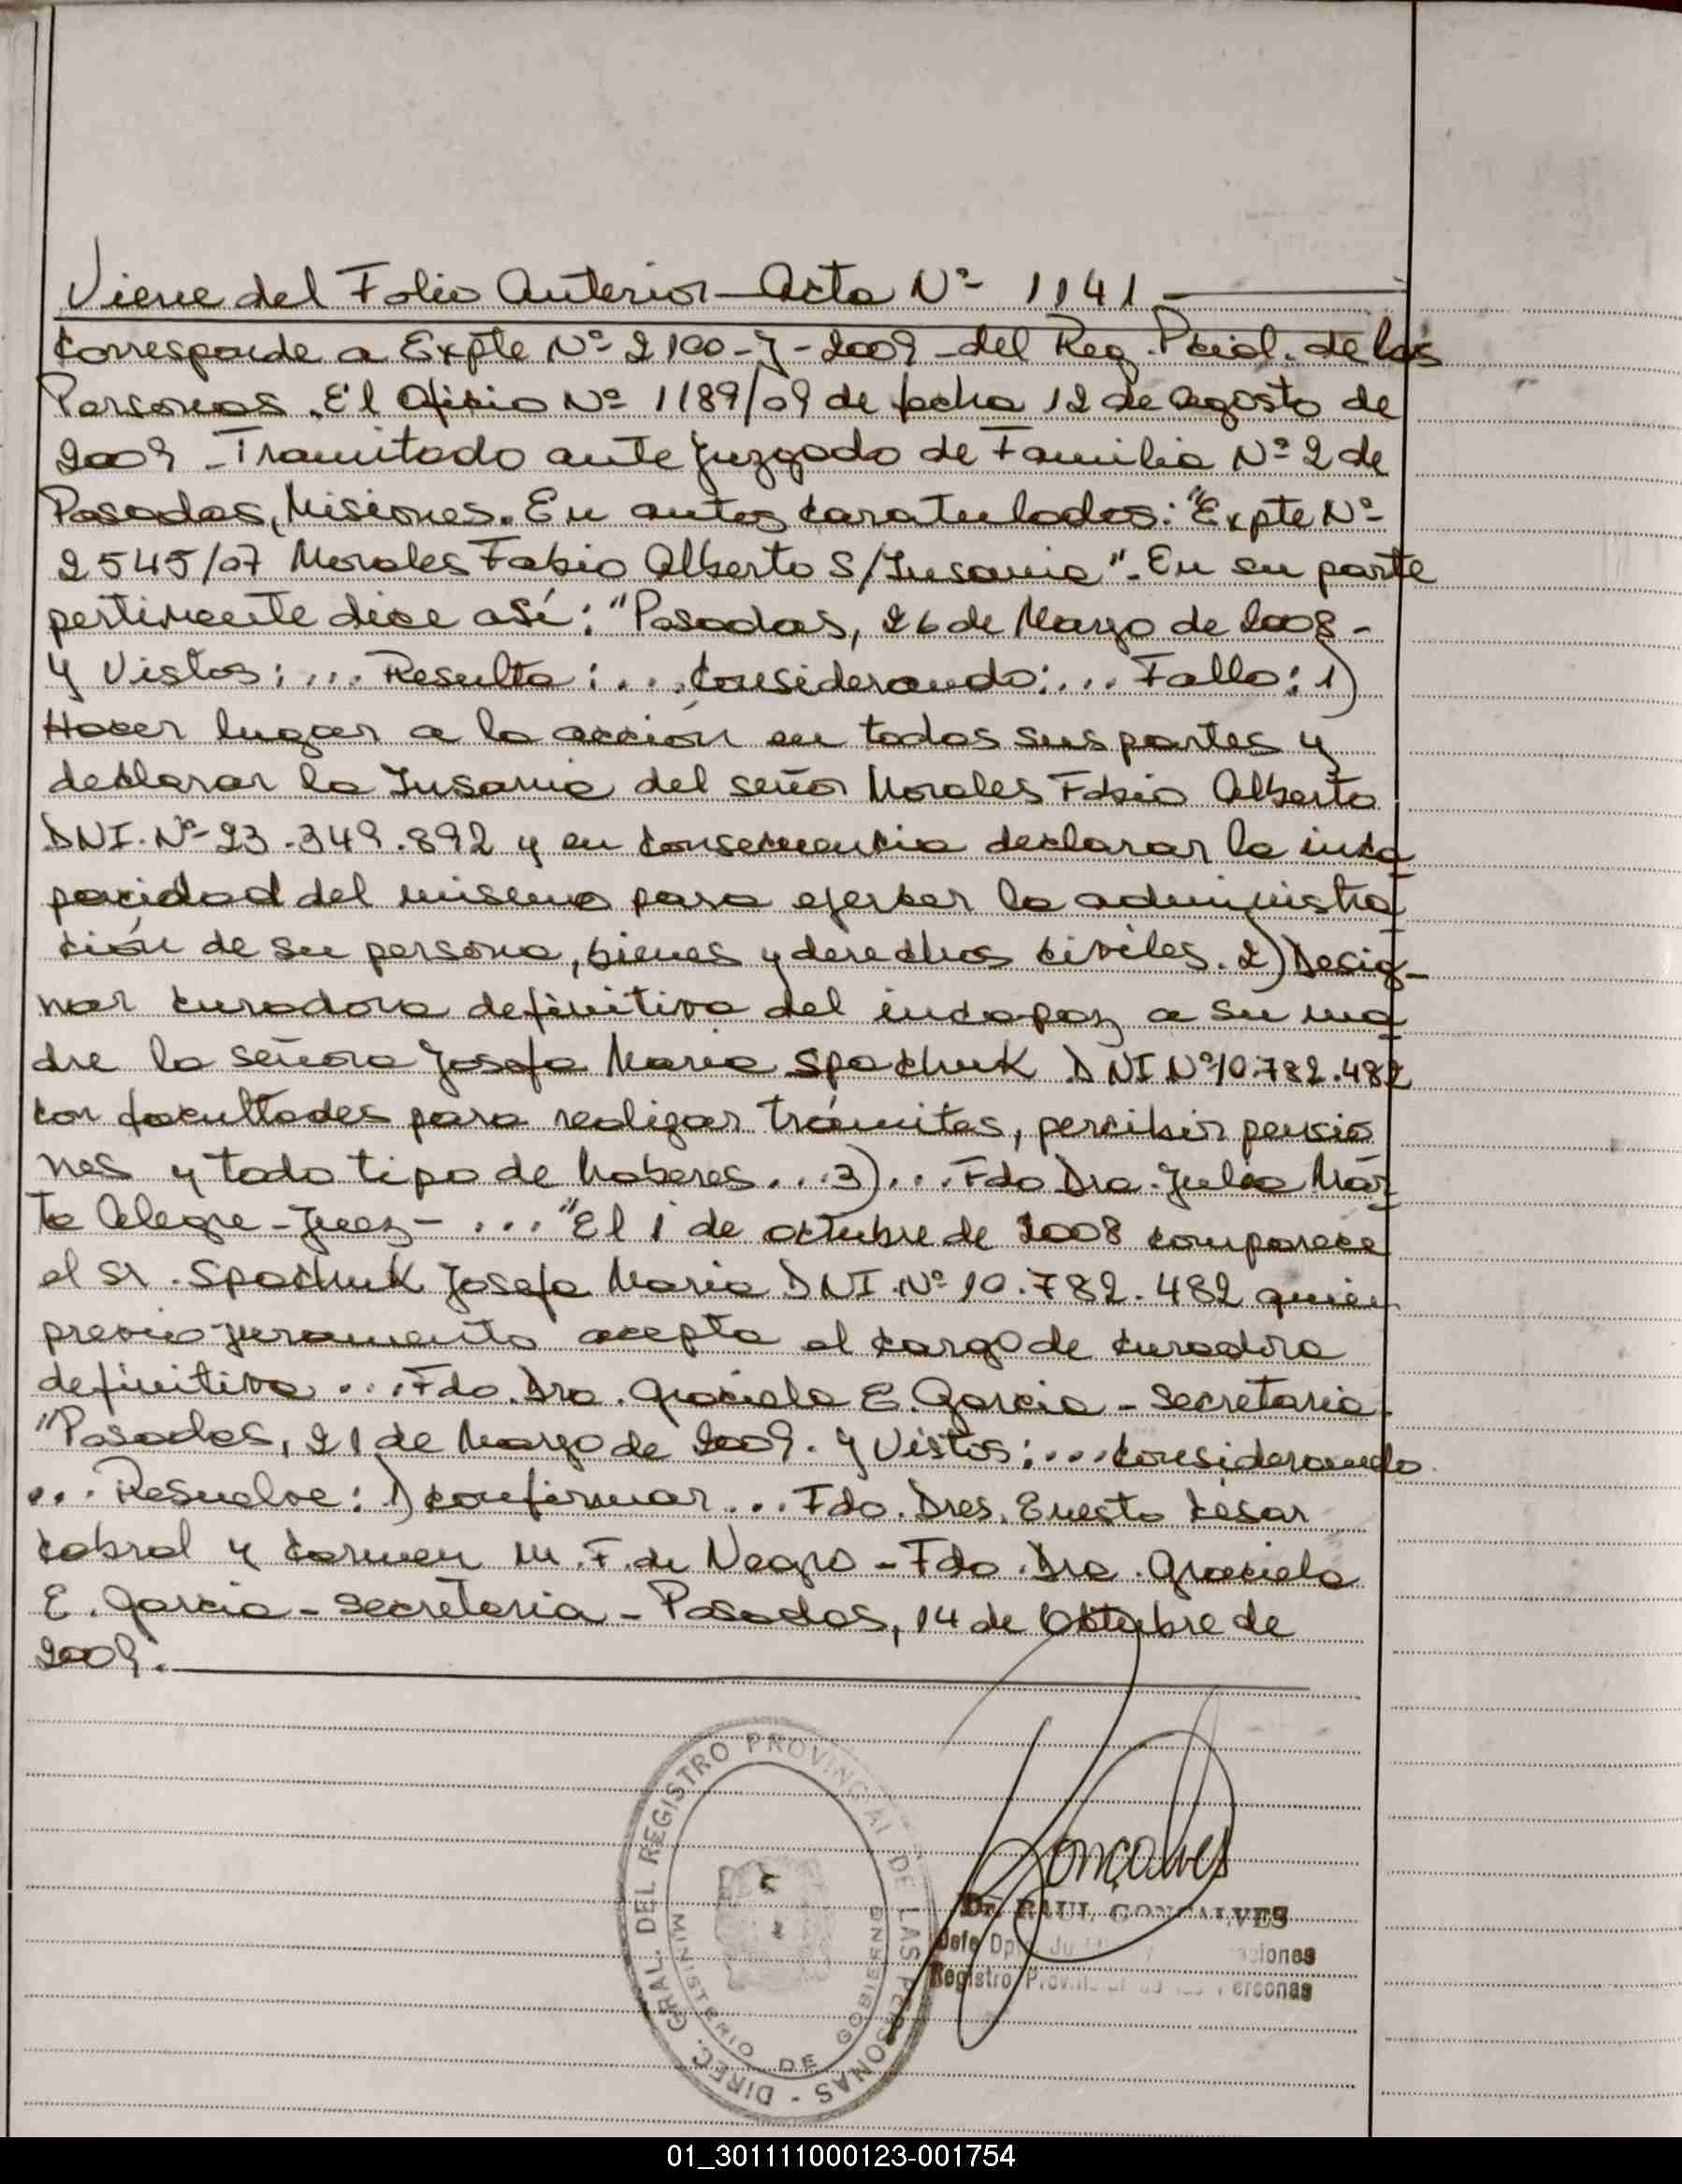 Viene del Folio Anterior - Acta Nº 1141 -
Corresponde a Expte Nº 2100-J-2009 - del Reg. Pcial. de las
Personas. El Oficio Nº 1189/09 de fecha 12 de Agosto de
2009 - Tramitado ante Juzgado de Familia Nº 2 de
Posadas, Misiones. En autos caratulados: "Expte Nº
2545/07 Morales Fabio Alberto S/Insania". En su parte
pertinente dice así: "Posadas, 26 de Marzo de 2008 -
Y Vistos: ... Resulta: ... Considerando: ... Fallo: 1)
Hacer lugar a la acción en todas sus partes y
declarar la Insania del señor Morales Fabio Alberto
DNI. Nº 23.349.892 y en consecuencia declarar la inca
pacidad del mismo para ejercer la administra
ción de su persona, bienes y derechos civiles. 2) Desig-
nar curadora definitiva del incapaz a su ma
dre la señora Josefa Maria Spachuk DNI Nº 10.782.482
con facultades para realizar trámites, percibir pensio
nes y todo tipo de haberes ... 3) ... Fdo Dra. Julia Mar
ta Alegre - Juez - ... "El 1 de octubre de 2008 comparece
el sr. Spachuk Josefa Maria DNI. Nº 10.782.482 quien
previo juramento acepta el cargo de curadora
definitiva ... Fdo. Dra. Graciela E. Garcia - Secretaria.
"Posadas, 21 de Marzo de 2009. Y Vistos: ... Considerando
... Resuelve: 1) confirmar ... Fdo. Dres. Ernesto César
Cabral y Carmen M. F. de Negro - Fdo. Dra. Graciela
E. Garcia - Secretaria - Posadas, 14 de Octubre de
2009.
DIREC. GRAL. DEL REGISTRO PROVINCIAL DE LAS PERSONAS -
MINISTERIO DE GOBIERNO
Gonçalves
Dr. RAUL GONCALVES
Jefe Dpto.
Registro Provincial de las Personas
01_301111000123-001754